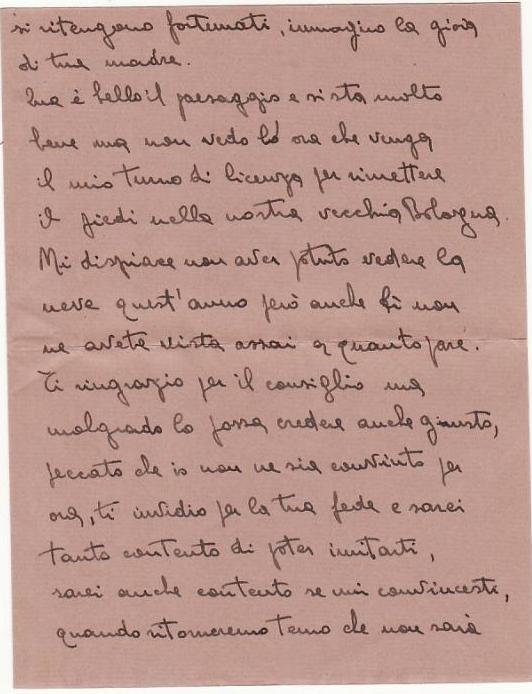 si ritengono fortunati, immagino la gioia
di tua madre.
Qua è bello il paesaggio e si sta molto
bene ma non vedo l'ora che venga
il mio turno di licenza per rimettere
il piedi nella nostra vecchia Bologna.
Mi dispiace non aver potuto vedere la
neve quest'anno però anche lì non
ne avete vista assai a quanto pare.
Ti ringrazio per il consiglio ma
malgrado lo possa credere anche giusto,
peccato che io non ne sia convinto per
ora, ti invidio per la tua fede e sarei
tanto contento di poter imitarti,
sarei anche contento se mi convincesti,
quando ritorneremo temo che non sarà